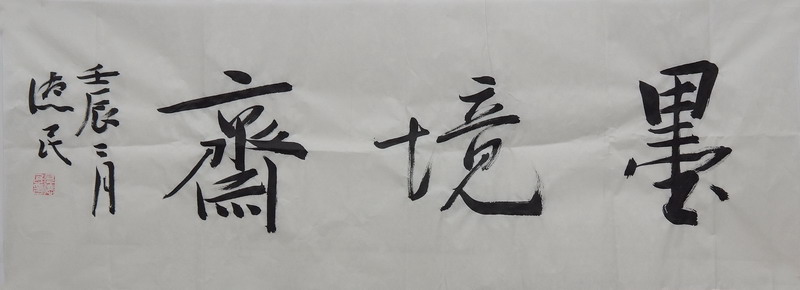 墨境齋
壬辰二月
德民